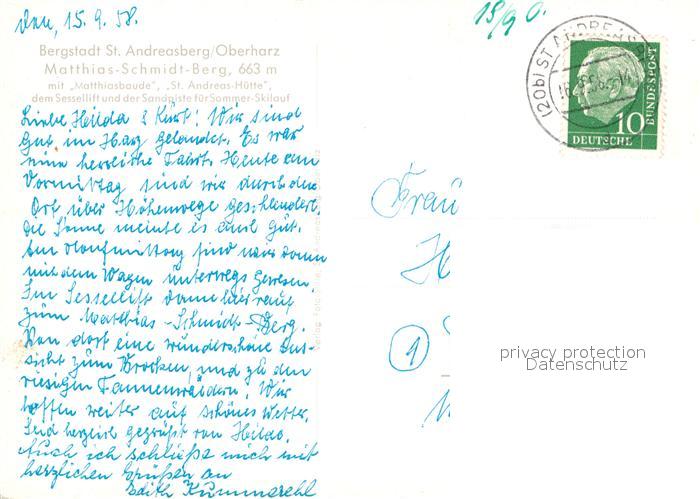 den, 15.9.58.
15/9 0.
Bergstadt St. Andreasberg/Oberharz
Matthias-Schmidt-Berg, 663 m
mit „Matthiasbaude", „St. Andreas-Hütte",
dem Sessellift und der Sandpiste für Sommer-Skilauf
Liebe Hilda & Kurt! Wir sind
gut im Harz gelandet. Es war
eine herrliche Fahrt. Heute am
Vormittag sind wir durch den
Ort über Höhenwege geschlendert,
die Sonne meinte es auch gut.
Am Nachmittag sind wir dann
mit dem Wagen unterwegs gewesen.
Im Sessellift dann hinauf
zum Matthias-Schmidt-Berg.
Von dort eine wunderschöne Aus-
sicht zum Brocken, und zu den
riesigen Tannenwäldern. Wir
hoffen weiter auf schönes Wetter.
Seid herzlich gegrüßt von Hilde.
Auch ich schließe mich mit
herzlichen Grüßen an
Edith
(20b) ST. ANDREASB
10
DEUTSCHE
BUNDESPOST
Frau
H
1
privacy protection
Datenschutz